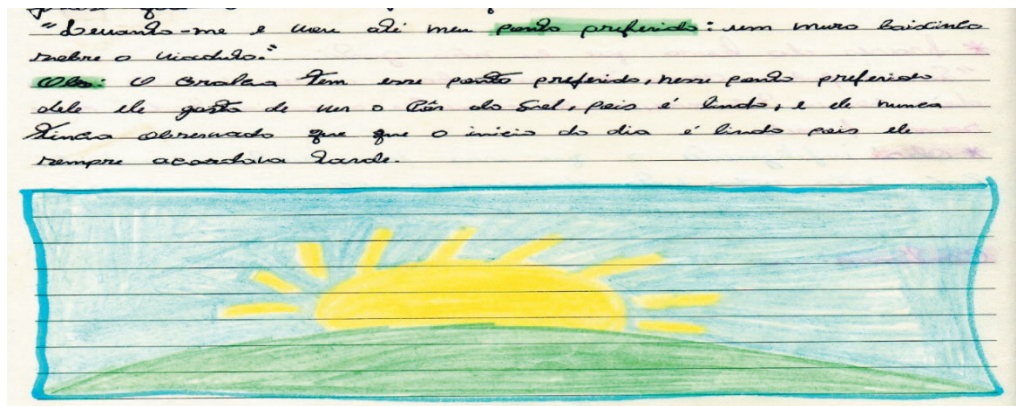 "Levanto-me e vou até meu ponto preferido: um muro baixinho
sobre o viaduto."
Obs: O tem esse ponto preferido, nesse ponto preferido
dele ele gosta de ver o Pôr do Sol, pois é lindo, e ele nunca
tinha observado que que o início do dia é lindo pois ele
sempre acordava tarde.